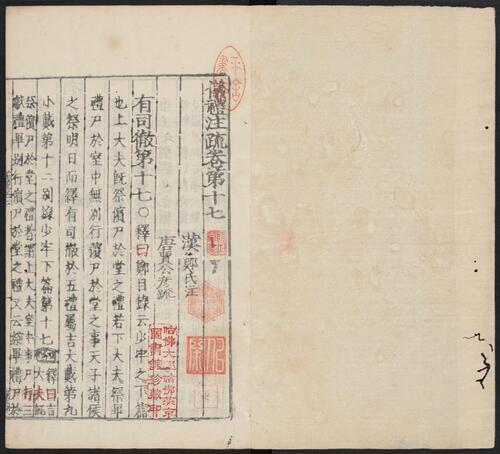 儀禮注疏卷第十七
漢鄭氏注
唐賈公彥疏
有司徹第十七○釋曰鄭目錄云少牢之下篇
也上大夫既祭儐尸於堂之禮若下大夫祭畢
禮尸於室中無別行儐尸於堂之事天子諸侯
之祭明日而繹有司徹於五禮屬吉大戴第九
小戴第十二別錄少牢下篇第十七
祭儐尸於堂之禮者謂上大夫室中事尸行三
獻禮畢別行儐尸於堂之禮又云祭畢禮尸於
哈佛大學哈佛燕京
圖書館珍藏印